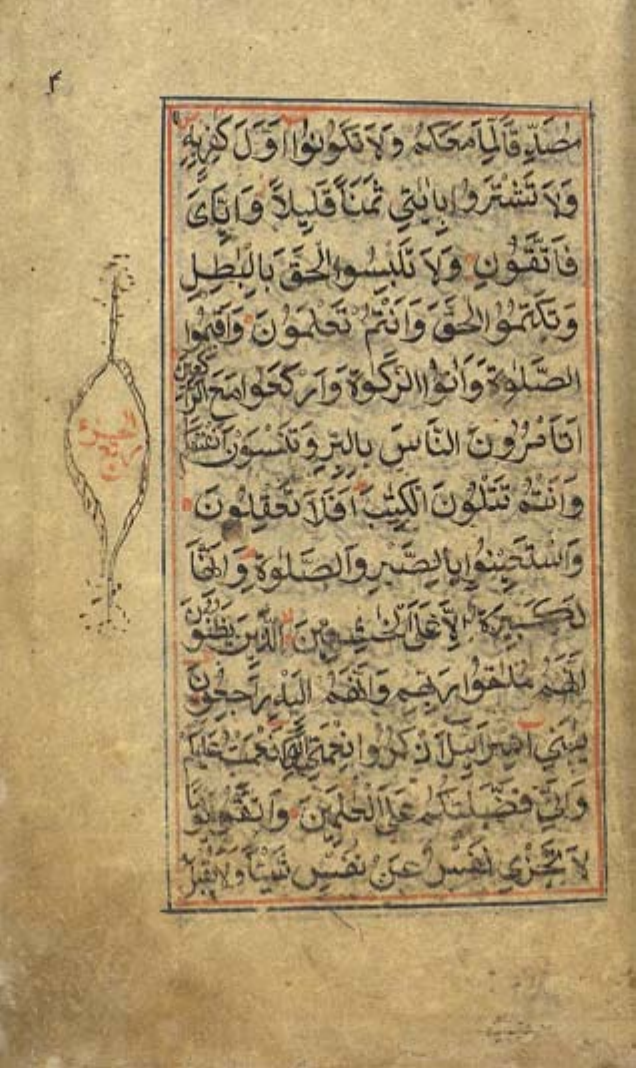 ۴
مُصَدِّقًا لِمَا مَعَكُمْ وَلَا تَكُونُوا أَوَّلَ كَافِرٍ بِهِ
وَلَا تَشْتَرُوا بِاٰيٰتِي ثَمَنًا قَلِيلًا وَاِيَّايَ
فَاتَّقُونِ وَلَا تَلْبِسُوا الْحَقَّ بِالْبٰطِلِ
وَتَكْتُمُوا الْحَقَّ وَاَنْتُمْ تَعْلَمُونَ وَاَقِيمُوا
الصَّلٰوةَ وَاٰتُوا الزَّكٰوةَ وَارْكَعُوا مَعَ الرّٰكِعِينَ
اَتَأْمُرُونَ النَّاسَ بِالْبِرِّ وَتَنْسَوْنَ اَنْفُسَكُمْ
وَاَنْتُمْ تَتْلُونَ الْكِتٰبَ اَفَلَا تَعْقِلُونَ
وَاسْتَعِينُوا بِالصَّبْرِ وَالصَّلٰوةِ وَاِنَّهَا
لَكَبِيرَةٌ اِلَّا عَلَى الْخٰشِعِينَ الَّذِينَ يَظُنُّونَ
اَنَّهُمْ مُلٰقُوا رَبِّهِمْ وَاَنَّهُمْ اِلَيْهِ رَاجِعُونَ
يٰبَنِي اِسْرَائِيلَ اذْكُرُوا نِعْمَتِيَ الَّتِي اَنْعَمْتُ عَلَيْكُمْ
وَاَنِّي فَضَّلْتُكُمْ عَلَى الْعٰلَمِينَ وَاتَّقُوا يَوْمًا
لَا تَجْزِي نَفْسٌ عَنْ نَفْسٍ شَيْئًا وَلَا يُقْبَلُ